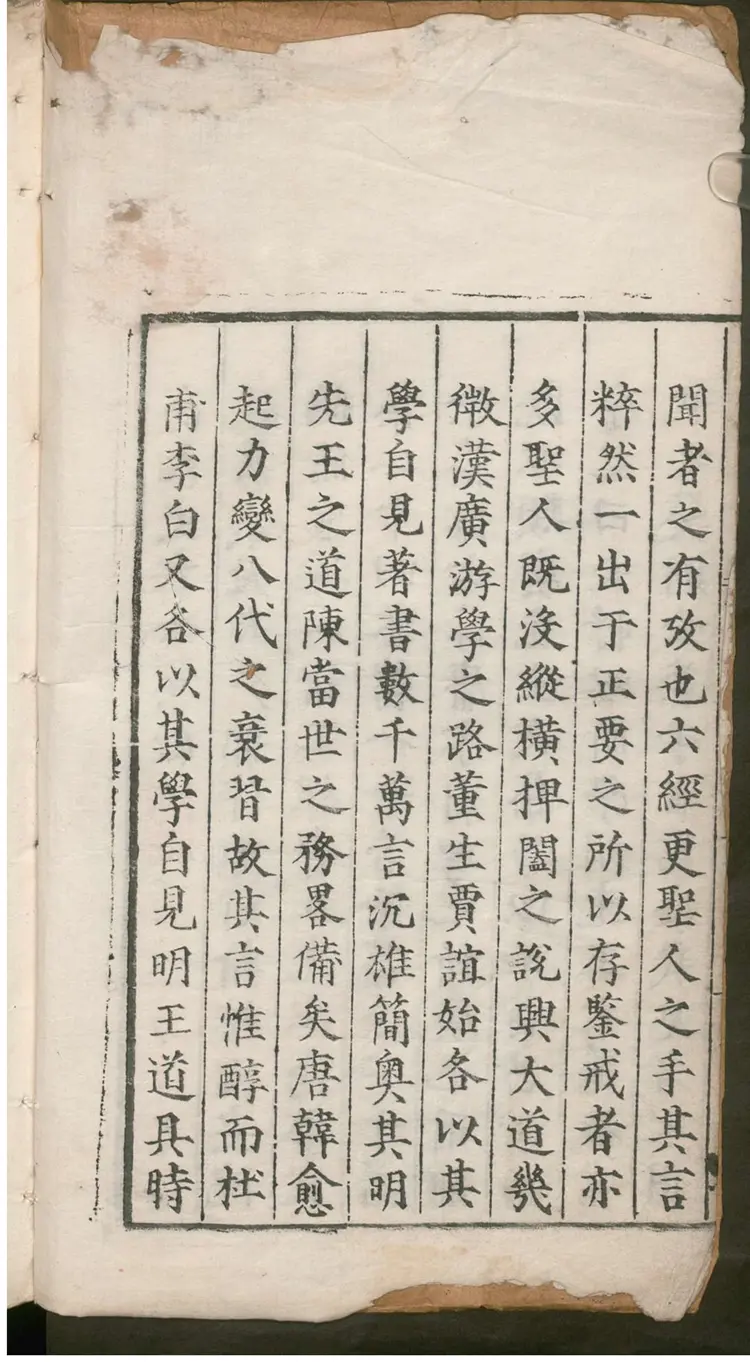 聞者之有攷也六經更聖人之手其言
粹然一出于正要之所以存鑒戒者亦
多聖人既沒縱橫捭闔之說興大道幾
微漢廣游學之路董生賈誼始各以其
學自見著書數千萬言沉雄簡奧其明
先王之道陳當世之務畧備矣唐韓愈
起力變八代之衰習故其言惟醇而杜
甫李白又各以其學自見明王道具時